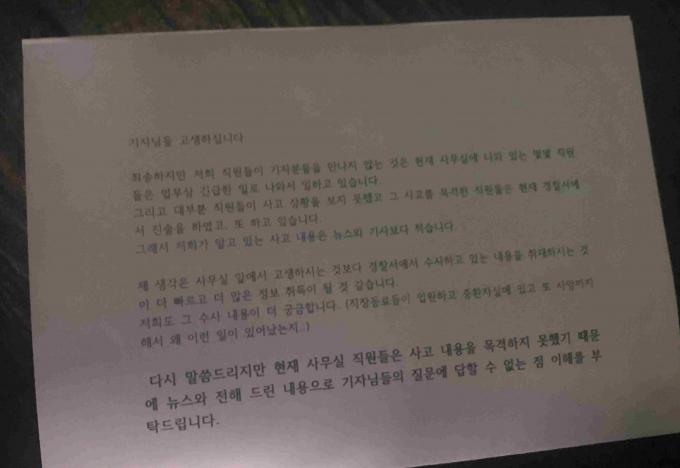 기자님들 고생하십니다.
죄송하지만 저희 직원들이 기자분들을 만나지 않는 것은 현재 사무실에 나와 있는 몇몇 직원
들은 업무상 긴급한 일로 나와서 일하고 있습니다.
그리고 대부분 직원들이 사고 상황을 보지 못했고 그 사고를 목격한 직원들은 현재 경찰서에
서 진술을 하였고, 또 하고 있습니다.
그래서 저희가 알고 있는 사고 내용은 뉴스와 기사보다 적습니다.
제 생각은 사무실 앞에서 고생하시는 것보다 경찰서에서 수사하고 있는 내용를 취재하시는 것
이 더 빠르고 더 많은 정보 취득이 될 것 같습니다.
저희도 그 수사 내용이 더 궁금합니다. (직장동료들이 입원하고 중환자실에 있고 또 사망까지
해서 왜 이런 일이 있어났는지..)
다시 말씀드리지만 현재 사무실 직원들은 사고 내용을 목격하지 못했기 때문
에 뉴스와 전해 드린 내용으로 기자님들의 질문에 답할 수 없는 점 이해를 부
탁드립니다.